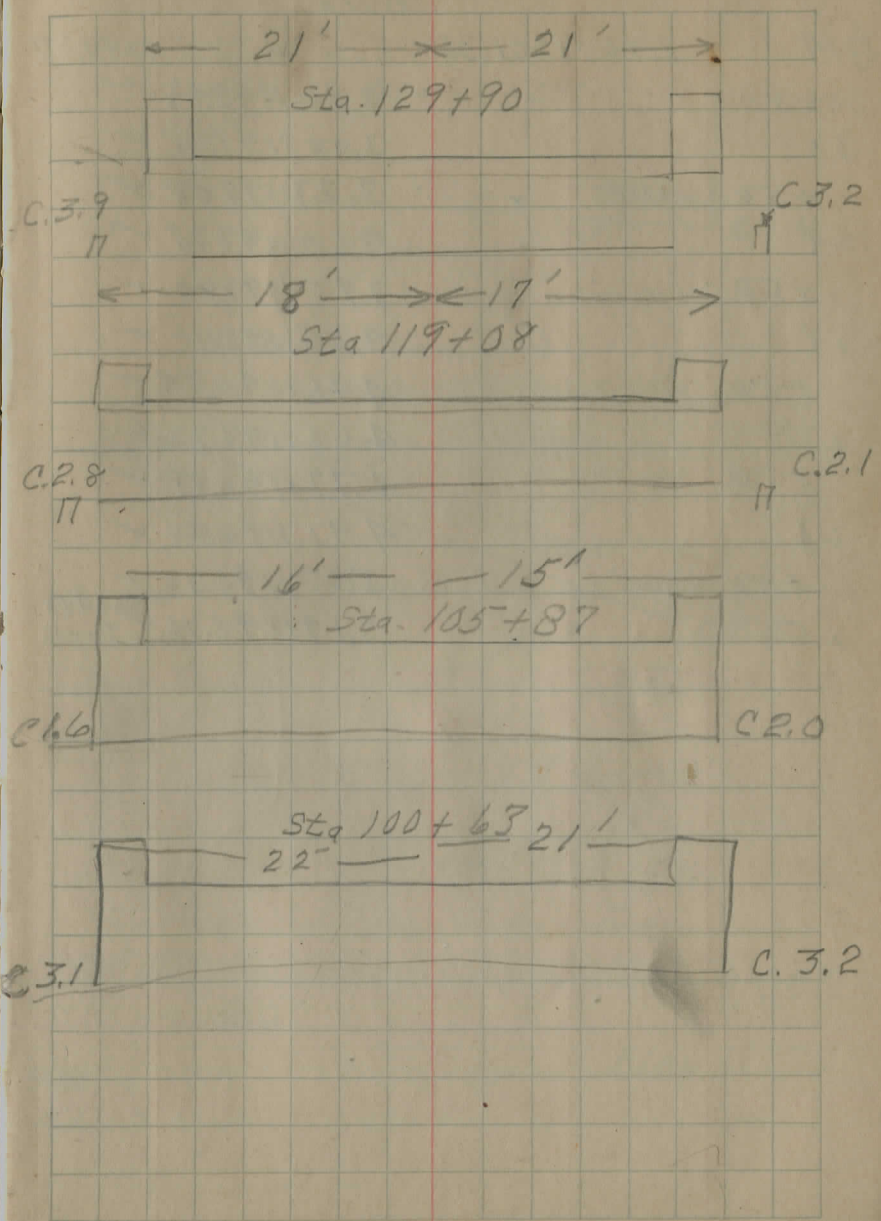 21' 21'
Sta. 129+90
C. 3.9 C 3.2
18' 17'
Sta 119+08
C. 2.8 C. 2.1
16' 15'
Sta. 105+87
C 1.6 C 2.0
Sta 100+63
22' 21'
C 3.1 C. 3.2